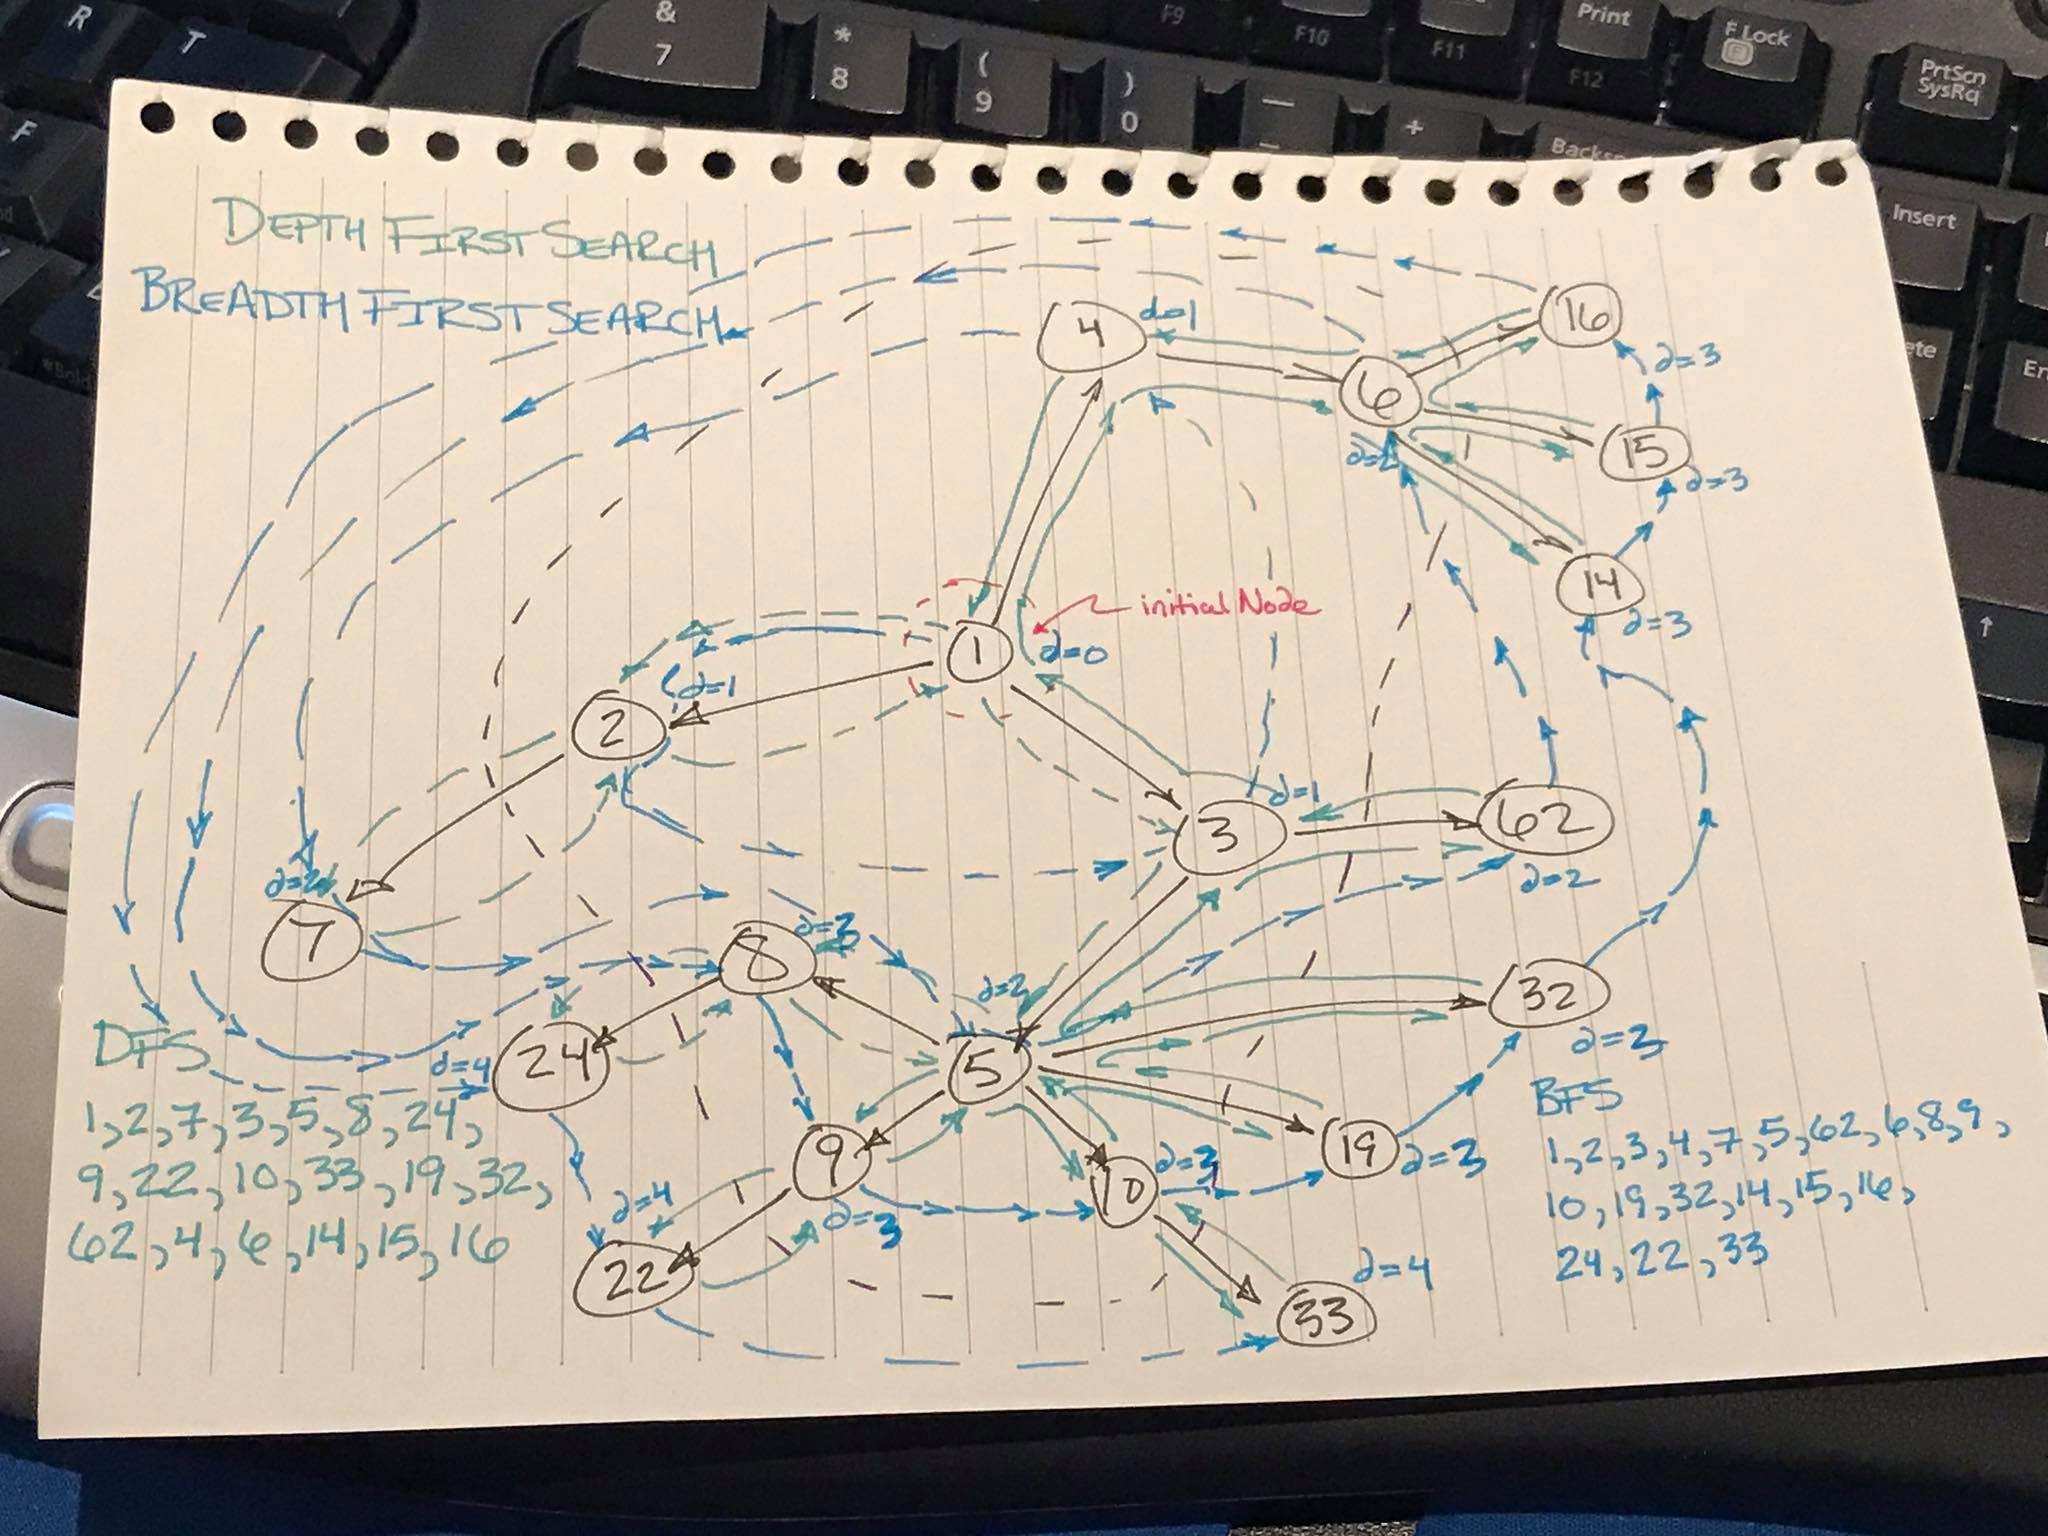 R
T
F
&
7
*
8
(
9
)
0
—
_
+
F9
F10
F11
Print
F12
F Lock
PrtScn
SysRq
Insert
↑
DEPTH FIRST SEARCH
BREADTH FIRST SEARCH
4
d=1
6
d=2
16
d=3
15
d=3
14
d=3
1
d=0
initial Node
2
d=1
3
d=1
62
d=2
7
d=2
8
d=3
24
d=4
5
d=2
32
d=3
9
d=3
10
d=3
19
d=3
22
d=4
33
d=4
DFS
1,2,7,3,5,8,24,
9,22,10,33,19,32,
62,4,6,14,15,16
BFS
1,2,3,4,7,5,62,6,8,9,
10,19,32,14,15,16,
24,22,33